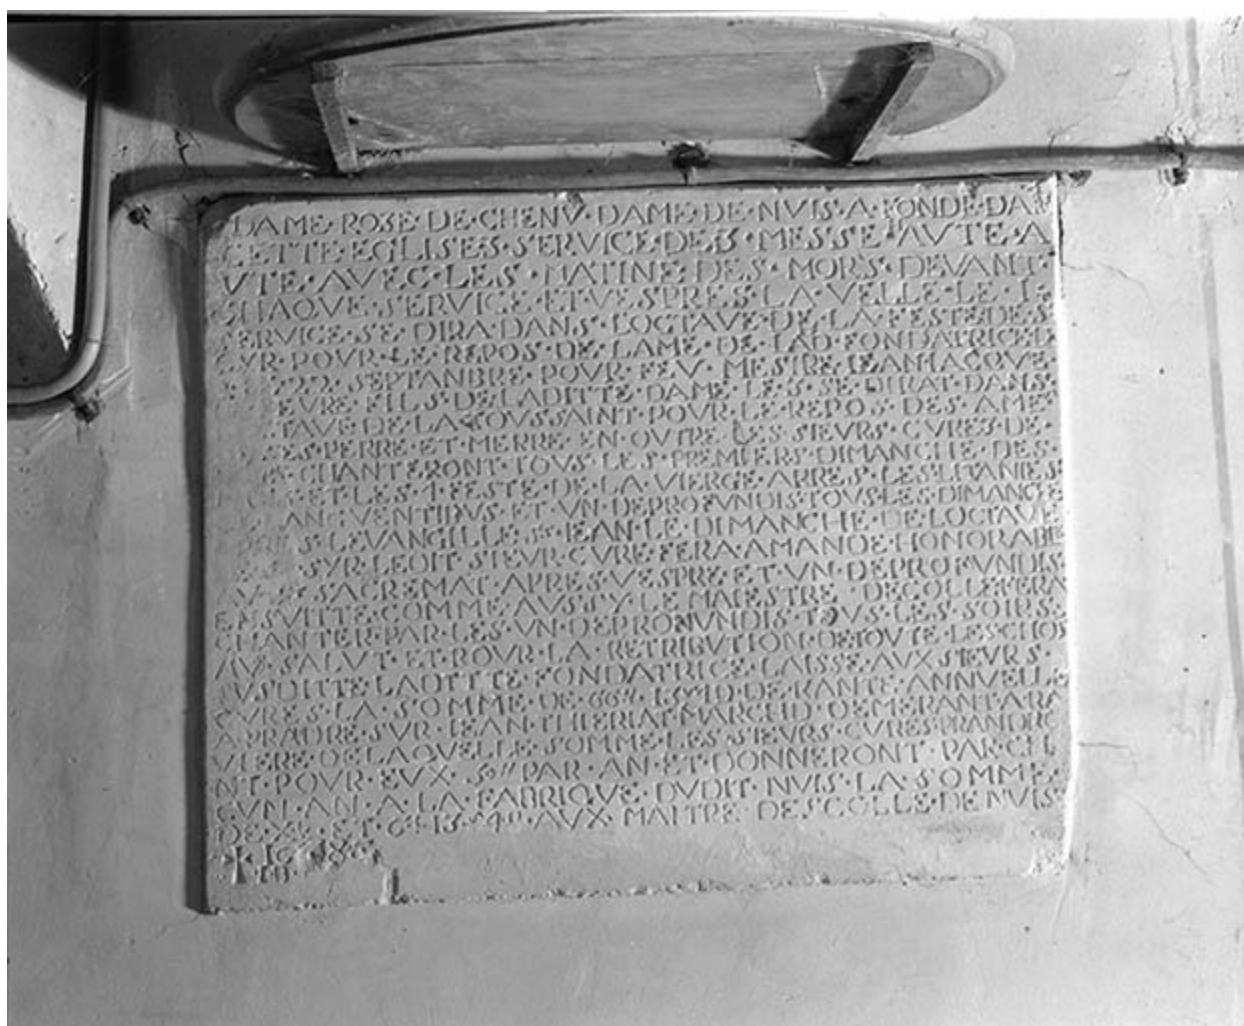 DAME·ROSE·DE·CHENV·DAME·DE·NVIS·A·FONDE·DAN
CETTE·EGLISE·3·SERVICE·DE·3·MESSE·AVTE·A
VTE·AVEC·LES·MATINE·DES·MORS·DEVANT
CHAQVE·SERVICE·ET·VESPRES·LA·VELLE·LE·I·
SERVICE·SE·DIRA·DANS·LOCTAVE·DE·LA·FESTE·DE·S
CYR·POVR·LE·REPOS·DE·LAME·DE·LAD·FONDATRICE
22·SEPTANBRE·POVR·FEV·MESIRE·IEAN·IACQVE
FILS·DE·LADITTE·DAME·LE·3·SE·DIRAT·DANS
TAVE·DE·LA·TOVSSAINT·POVR·LE·REPOS·DES·AME
SES·PERRE·ET·MERRE·EN·OVTRE·LES·SIEVRS·CVRES·DE·
CHANTERONT·TOVS·LES·PREMIERS·DIMANCHE·DES
ET·LES·4·FESTE·DE·LA·VIERGE·APRES·LES·LITANIES
ET·VN·DEPROFVNDIS·TOVS·LES·DIMANCHE
LEVANGILLE·ST·IEAN·LE·DIMANCHE·DE·LOCTAVE
SYR·LEDIT·SIEVR·CVRE·FERA·AMANDE·HONORABLE
SACREMAT·APRES·VESPRE·ET·VN·DEPROFVNDIS
ENSVITTE·COMME·AVSSY·LE·MAIESTRE·DECOLLE·FERA
CHANTER·PAR·LES·VN·DEPRONVNDIS·TOVS·LES·SOIRS·
AV·SALVT·ET·POVR·LA·RETRIBVTION·DE·TOVTE·LES·CHOS
SVSDITTE·LADITTE·FONDATRICE·LAISSE·AVX·SIEVRS·
CVRES·LA·SOMME·DE·66·13·4D·DE·RANTE·ANNVELLE
A·PRADRE·SVR·IEAN·THIERIAT·MARCHD·DEMERANT·A·RA
VIERE·DE·LAQVELLE·SOMME·LES·SIEVRS·CVRES·PRANDRO
NT·POVR·EVX·50·PAR·AN·ET·DONNERONT·PAR·CH
CVN·AN·A·LA·FABRIQVE·DVDIT·NVIS·LA·SOMME·
DE·X·ET·6·13·4·AVX·MAITRE·DESCOLLE·DE·NVIS